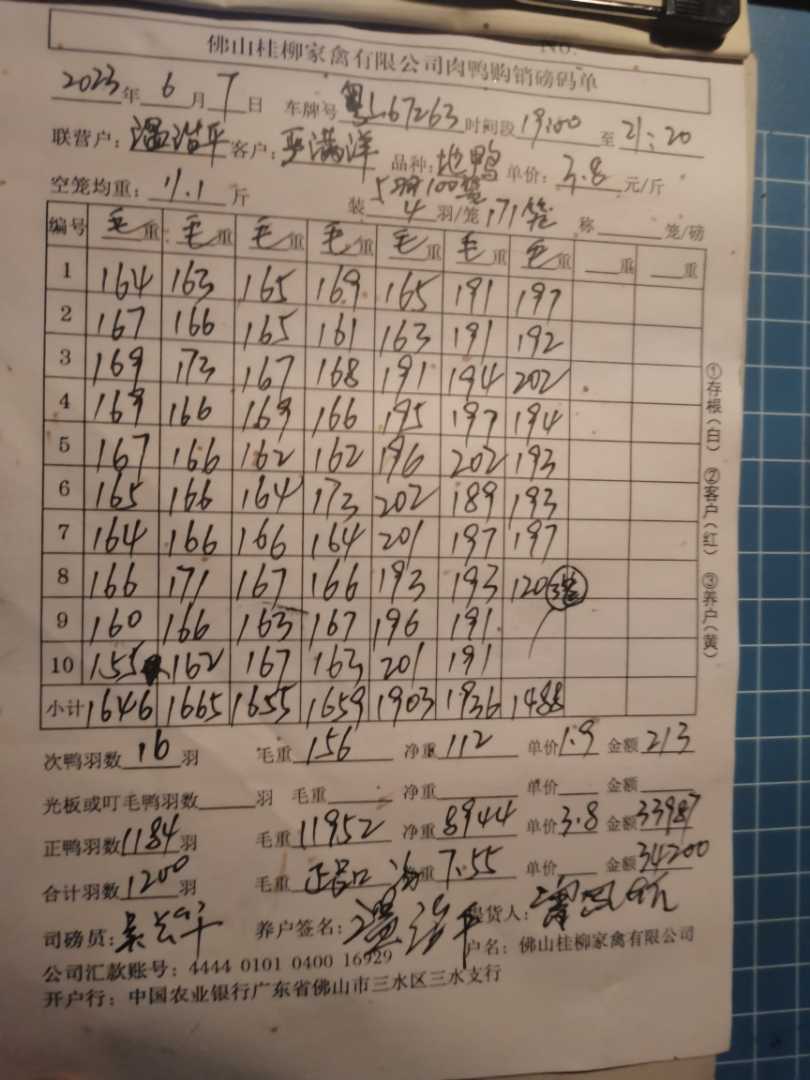 No.
佛山桂柳家禽有限公司肉鸭购销磅码单
2023年 6 月 7 日 车牌号 粤L67263 时间段 19:00 至 21:20
联营户: 温浩平 客户: 严满洋 品种: 地鸭 单价: 3.8 元/斤
空笼均重: 11.1 斤 5羽100笼
装 4 羽/笼 171笼 称 笼/磅
编号 毛重 毛重 毛重 毛重 毛重 毛重 毛重 重 重
1 164 163 165 169 165 191 197
2 167 166 165 161 163 191 192
3 169 173 167 168 191 194 202
4 169 166 169 166 195 197 194
5 167 166 162 162 196 202 193
6 165 166 164 173 202 189 193
7 164 166 166 164 201 197 197
8 166 171 167 166 193 193 120
9 160 166 163 167 196 191
10 155 162 167 163 201 191
小计 1646 1665 1655 1659 1903 1936 1488
次鸭羽数 16 羽 毛重 156 净重 112 单价 1.9 金额 213
光板或叮毛鸭羽数 羽 毛重 净重 单价 金额
正鸭羽数 1184 羽 毛重 11952 净重 8944 单价 3.8 金额 33987
合计羽数 1200 羽 毛重 重 7.55 单价 金额 34200
司磅员: 养户签名: 温浩平 提货人:
公司汇款账号: 4444 0101 0400 16929 户名: 佛山桂柳家禽有限公司
开户行: 中国农业银行广东省佛山市三水区三水支行
①存根(白) ②客户(红) ③养户(黄)